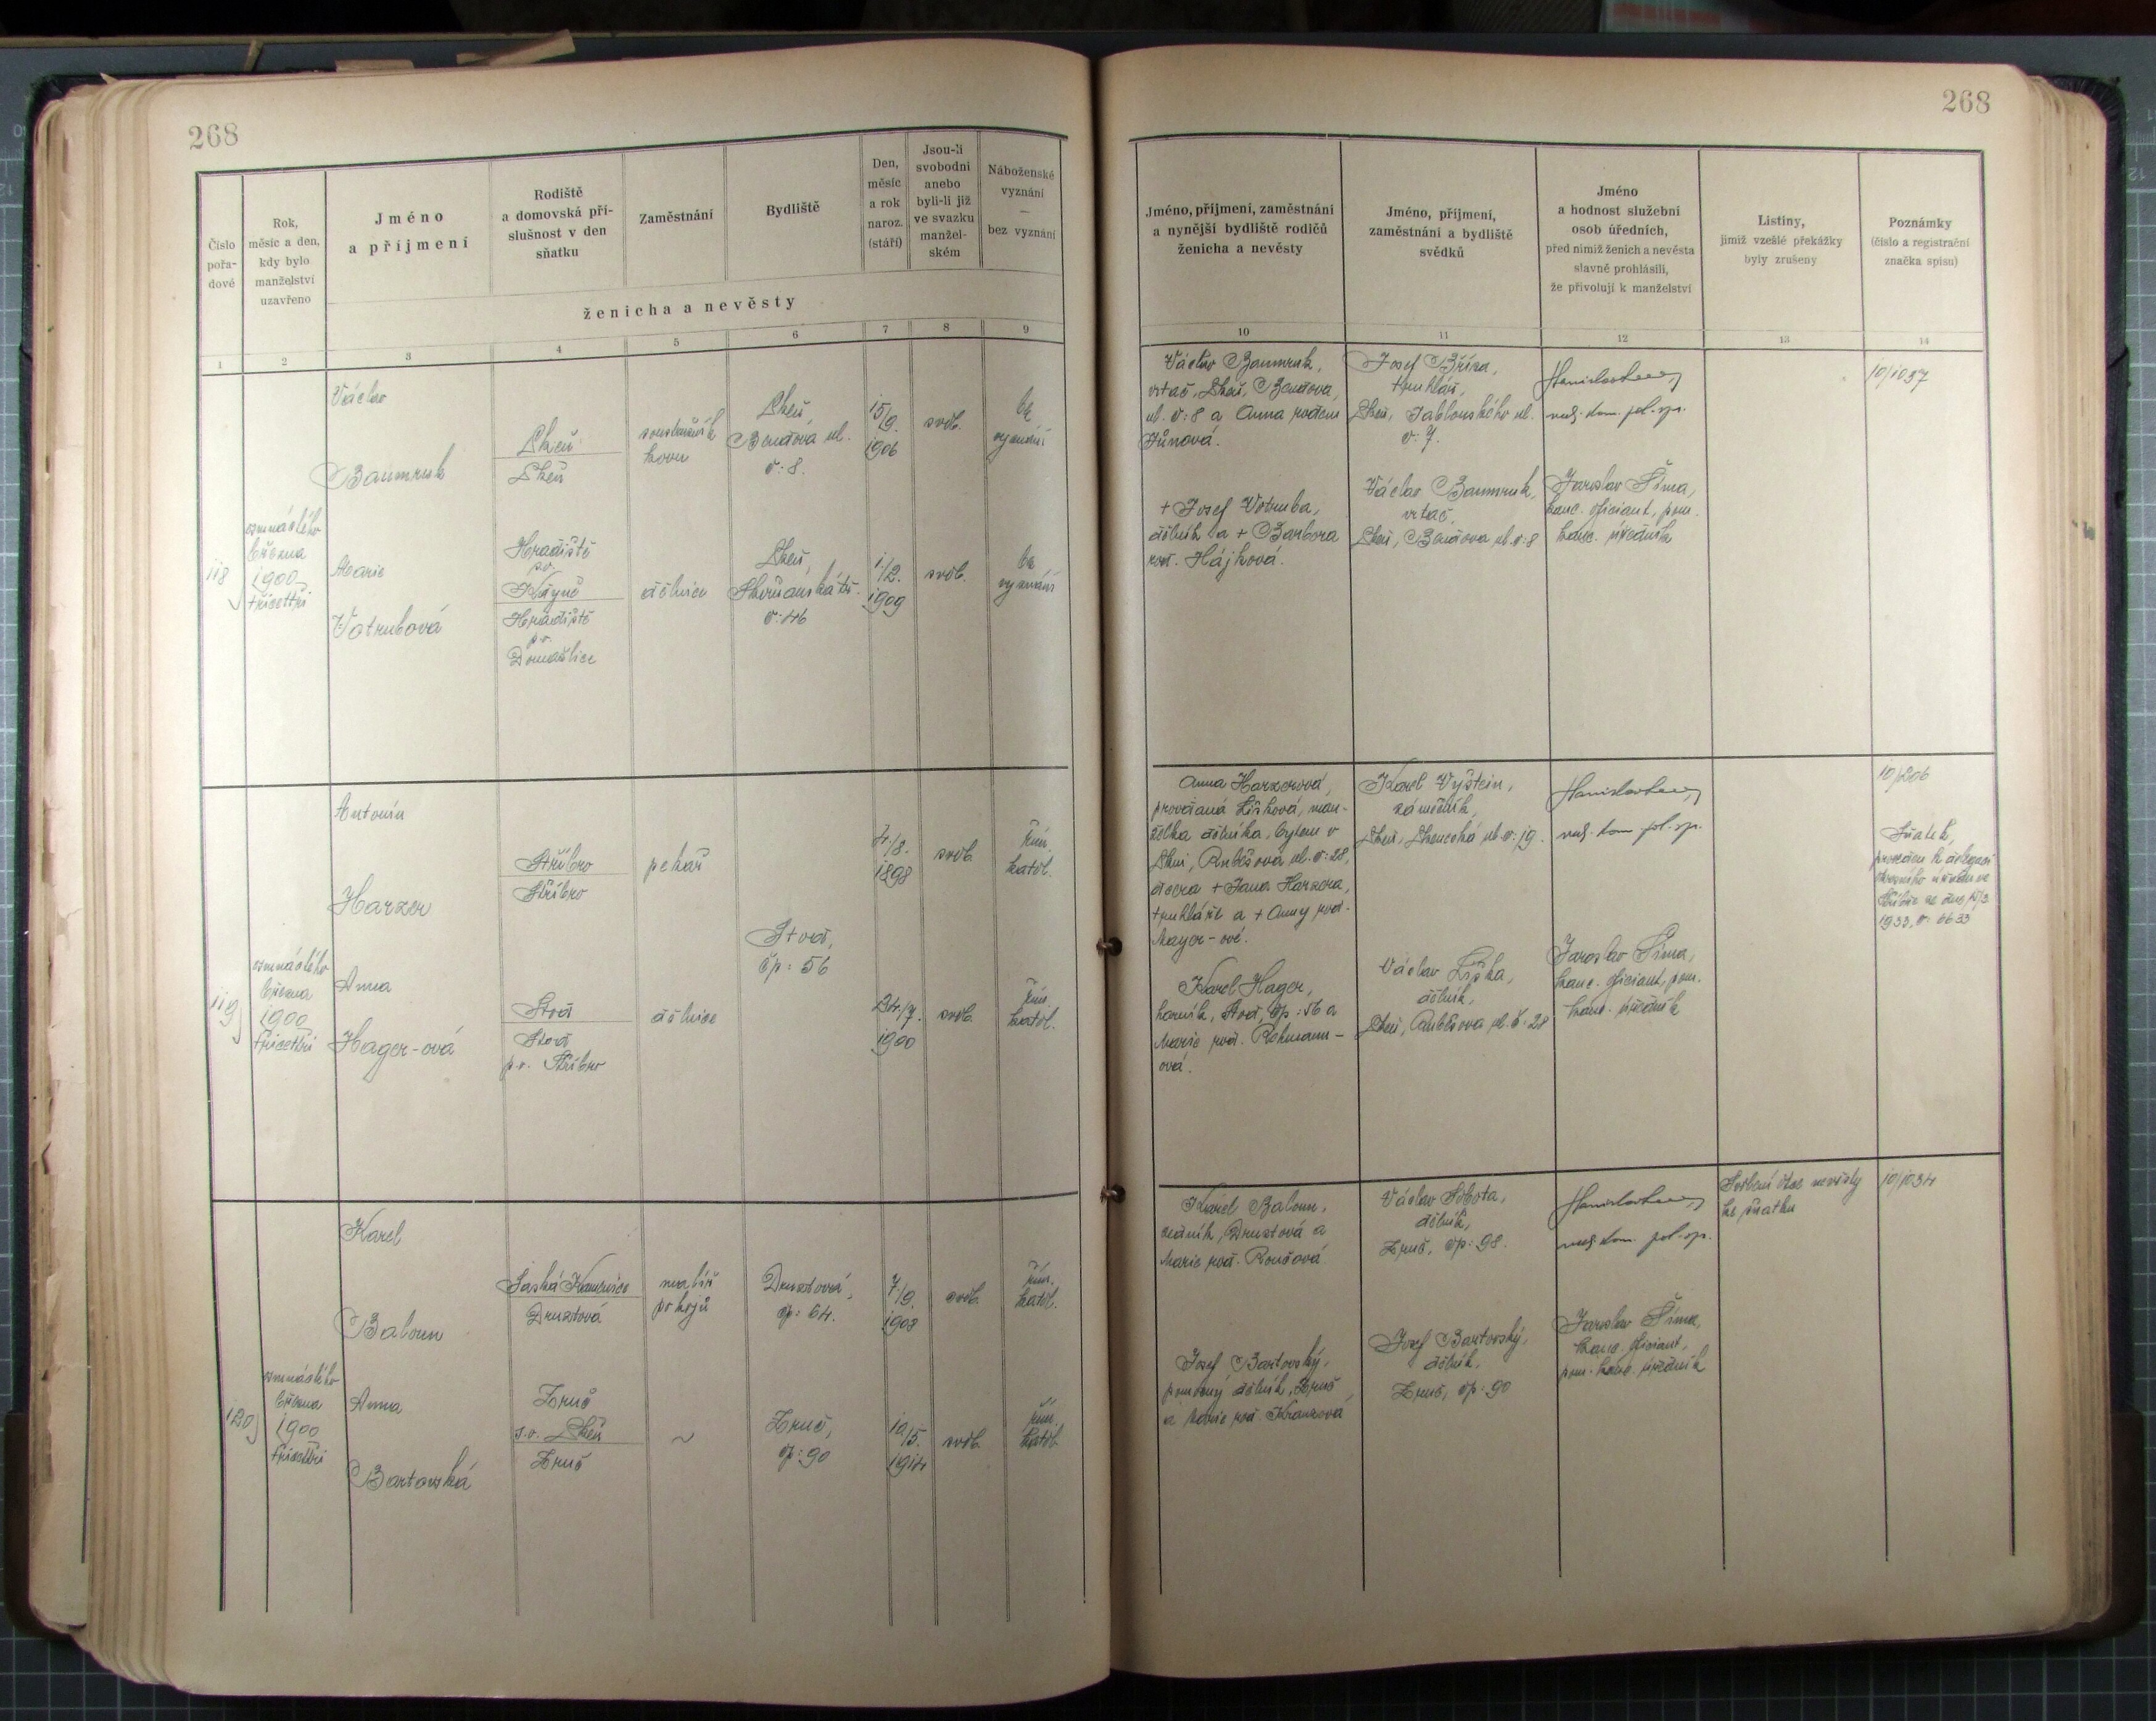 268
268
Číslo
pořa-
dové
Rok,
měsíc a den,
kdy bylo
manželství
uzavřeno
Jméno
a příjmení
Rodiště
a domovská pří-
slušnost v den
sňatku
Zaměstnání
Bydliště
Den,
měsíc
a rok
naroz.
(stáří)
Jsou-li
svobodni
anebo
byli-li již
ve svazku
manžel-
ském
Náboženské
vyznání
—
bez vyznání
ženicha a nevěsty
1
2
3
4
5
6
7
8
9
Jméno, příjmení, zaměstnání
a nynější bydliště rodičů
ženicha a nevěsty
Jméno, příjmení,
zaměstnání a bydliště
svědků
Jméno
a hodnost služební
osob úředních,
před nimiž ženich a nevěsta
slavně prohlásili,
že přivolují k manželství
Listiny,
jimiž vzešlé překážky
byly zrušeny
Poznámky
(číslo a registrační
značka spisu)
10
11
12
13
14
118
osmnáctého
března
1900
třicettři
Václav
Baumruk
Plzeň
Plzeň
soustružník
kovu
Plzeň,
Bendova ul.
č: 8.
15/9.
1906
svob.
bez
vyznání
Marie
Votrubová
Hradiště
p.o.
Kdyně
Hradiště
p.o.
Domažlice
dělnice
Plzeň,
Skvrňanská tř.
č: 46
1/2.
1909
svob.
bez
vyznání
Václav Baumruk,
vrtač, Plzeň, Bendova
ul. č: 8 a Anna rozená
Jůnová.
+ Josef Votruba,
dělník a + Barbora
roz. Hájková.
Josef Bříza,
truhlář,
Plzeň, Jablonského ul.
č: 7.
Václav Baumruk,
vrtač,
Plzeň, Bendova ul. č: 8
rad. kom. pol. sp.
Jaroslav Šíma,
kanc. oficiant, pom.
kanc. úředník
10/1037
119
osmnáctého
března
1900
třicettři
Antonín
Harzer
Stříbro
Stříbro
pekař
4./3.
1898
svob.
řím.
katol.
Stod,
čp: 56
Anna
Hager-ová
Stod
Stod
p.o. Stříbro
dělnice
24./7.
1900
svob.
řím.
katol.
Anna Harzerová,
provdaná Lišková, man-
želka dělníka, bytem v
Plzni, Rubešova ul. č: 28,
dcera + Jana Harzera,
truhláře a + Anny roz.
Mayer-ové.
Karel Hager,
horník, Stod, čp: 56 a
Marie roz. Rohmann-
ová.
Karel Vyštein,
zámečník,
Plzeň, Plzenecká ul. č: 19.
Václav Liška,
dělník,
Plzeň, Rubešova ul. č: 28
rad. kom. pol. sp.
Jaroslav Šíma,
kanc. oficiant, pom.
kanc. úředník
10/206
Sňatek,
proveden k delegaci
okresního úřadu ve
Stříbře ze dne
1933, č: 6633
120
osmnáctého
března
1900
třicettři
Karel
Baloun
Česká Kamenice
Druztová
malíř
pokojů
Druztová,
čp: 64.
7./9.
1908
svob.
řím.
katol.
Anna
Bartovská
Zruč
s.o. Plzeň
Zruč
~
Zruč,
čp: 90
10/5.
1914
svob.
řím.
katol.
Karel Baloun,
zedník, Druztová a
Marie roz. Roučová
Josef Bartovský,
pomocný dělník, Zruč
a Marie roz. Kranzová
Václav Sobota,
dělník,
Zruč, čp: 98.
Josef Bartovský,
dělník,
Zruč, čp: 90
rad. kom. pol. sp.
Jaroslav Šíma,
kanc. oficiant,
pom. kanc. úředník
Svolení otce nevěsty
ke sňatku
10/1034